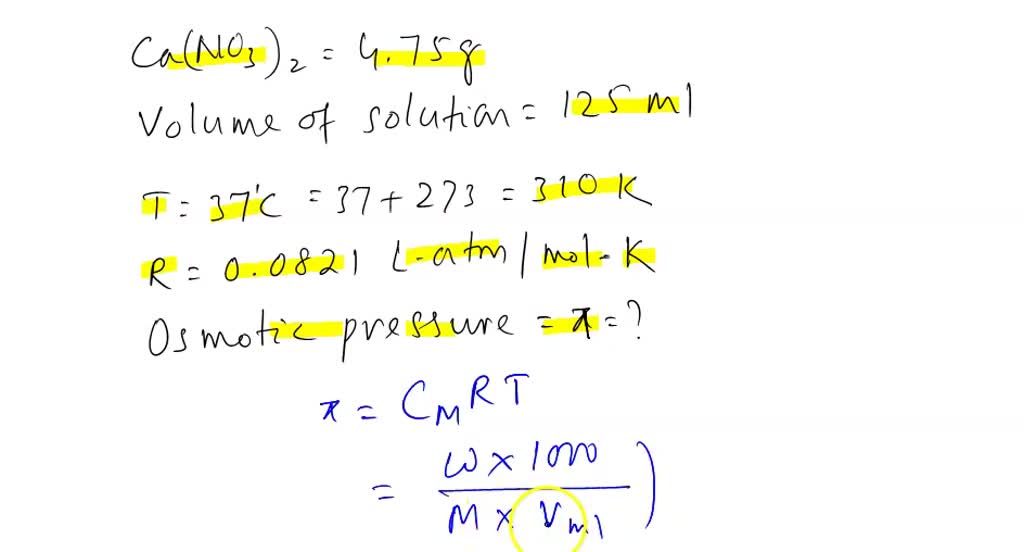 Ca(NO3)2 = 4.75g
Volume of solution = 125 ml
T = 37°C = 37 + 273 = 310 K
R = 0.0821 L-atm / mol-K
Osmotic pressure = π = ?
π = CM RT
= W × 1000 / M × Vml )